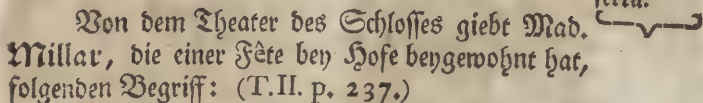 Von dem Theater des Schlosses giebt Mad.
Millar, die einer Fête bey Hofe beygewohnt hat,
folgenden Begriff: (T.II. p. 237.)